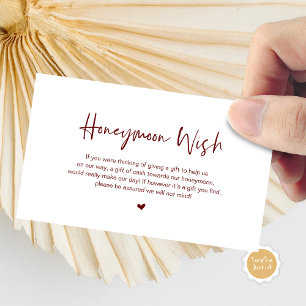 Honeymoon Wish
If you were thinking of giving a gift to help us
on our way, a gift of cash towards our honeymoon,
would really make our day! If however it's a gift you find,
please be assured we will not mind!